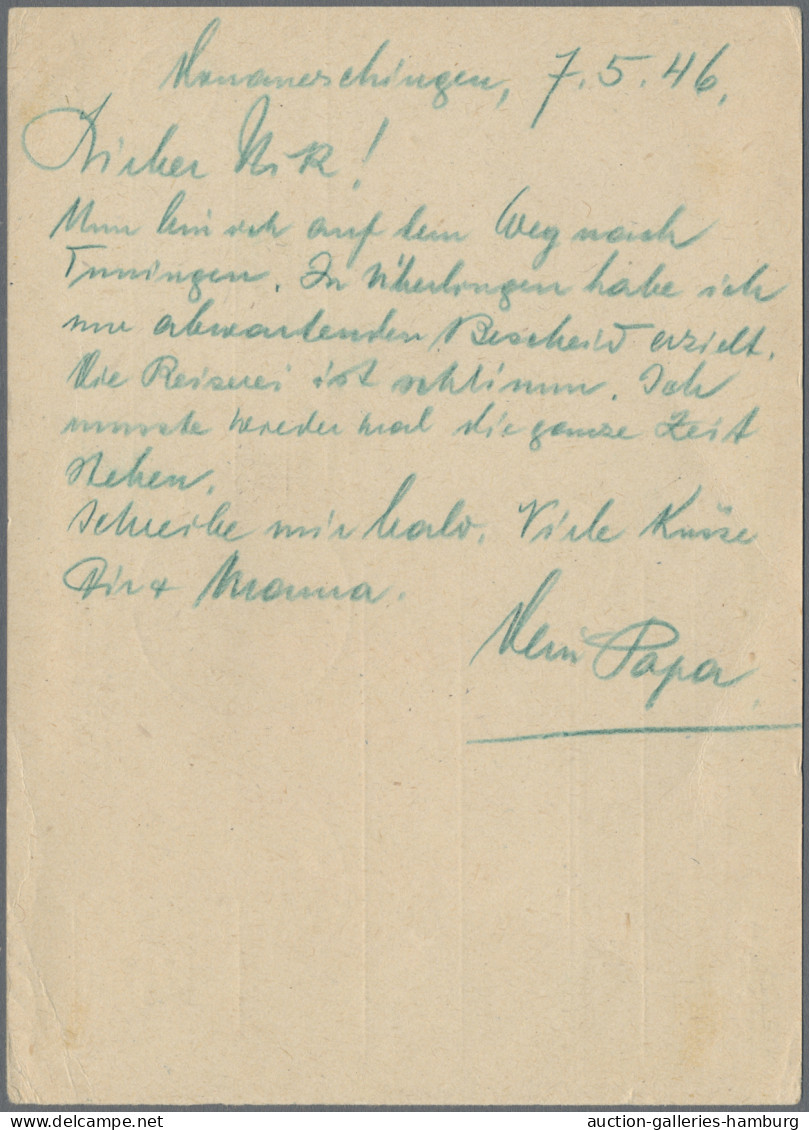 Donaueschingen, 7.5.46.
Lieber
Nun bin ich auf dem Weg nach
Tuningen. In Überlingen habe ich
nur abwartenden Bescheid erzielt.
Die Reiserei ist schlimm. Ich
musste wieder mal die ganze Zeit
stehen.
Schreibe mir bald. Viele Küsse
Dir + Mama.
Dein Papa
delcampe.net
auction-galleries-hamburg